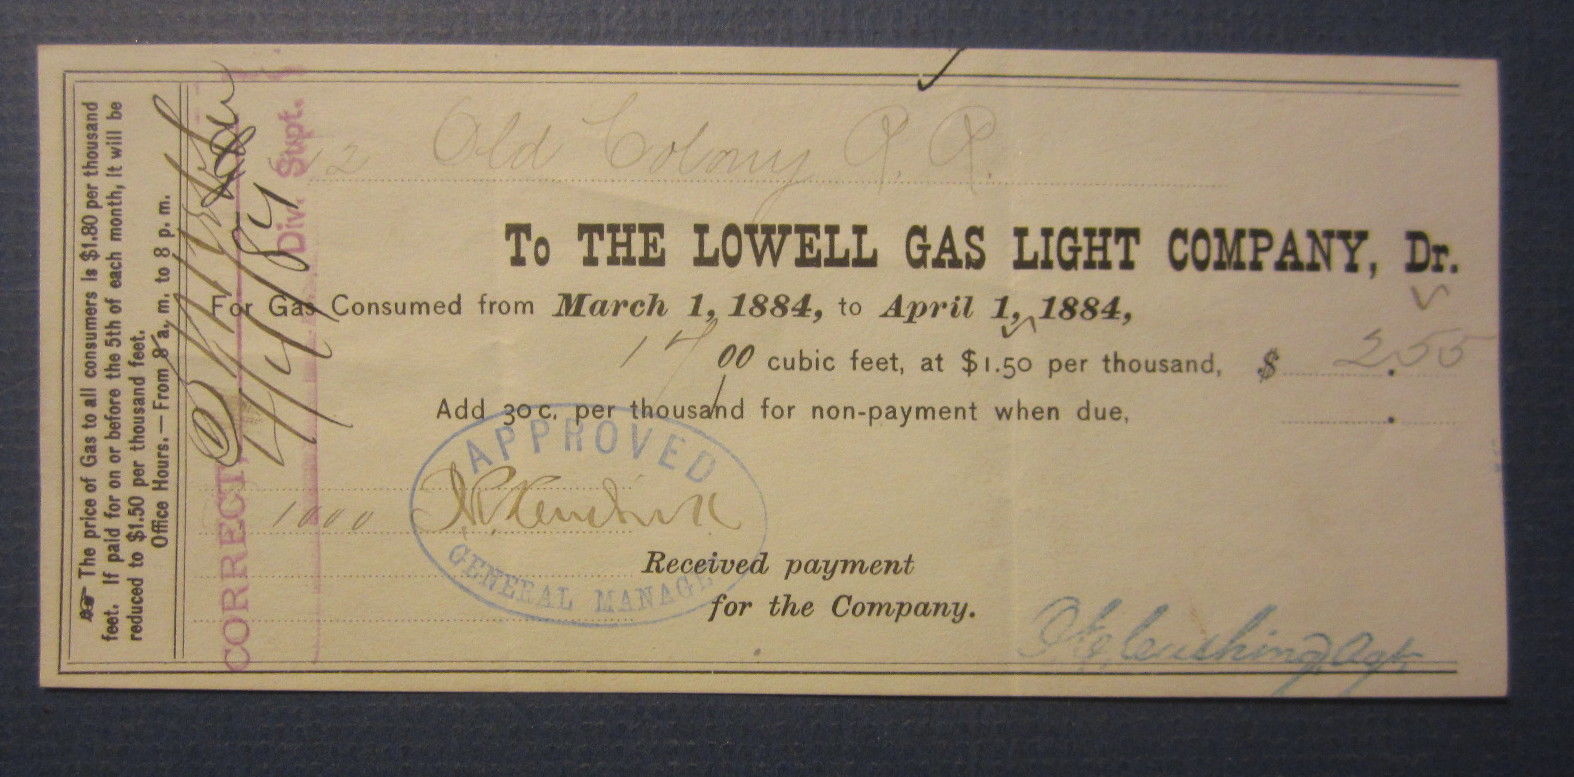 ☞ The price of Gas to all consumers is $1.80 per thousand
feet. If paid for on or before the 5th of each month, it will be
reduced to $1.50 per thousand feet.
Office Hours.—From 8 a. m. to 8 p. m.
CORRECT,
Div. Supt.
Old Colony R. R.
To THE LOWELL GAS LIGHT COMPANY, Dr.
For Gas Consumed from March 1, 1884, to April 1, 1884,
1700 cubic feet, at $1.50 per thousand, $ 2.55
Add 30c. per thousand for non-payment when due,
APPROVED
J. R. Kendrick
GENERAL MANAGER
1000
Received payment
for the Company.
Cushing, Agt.